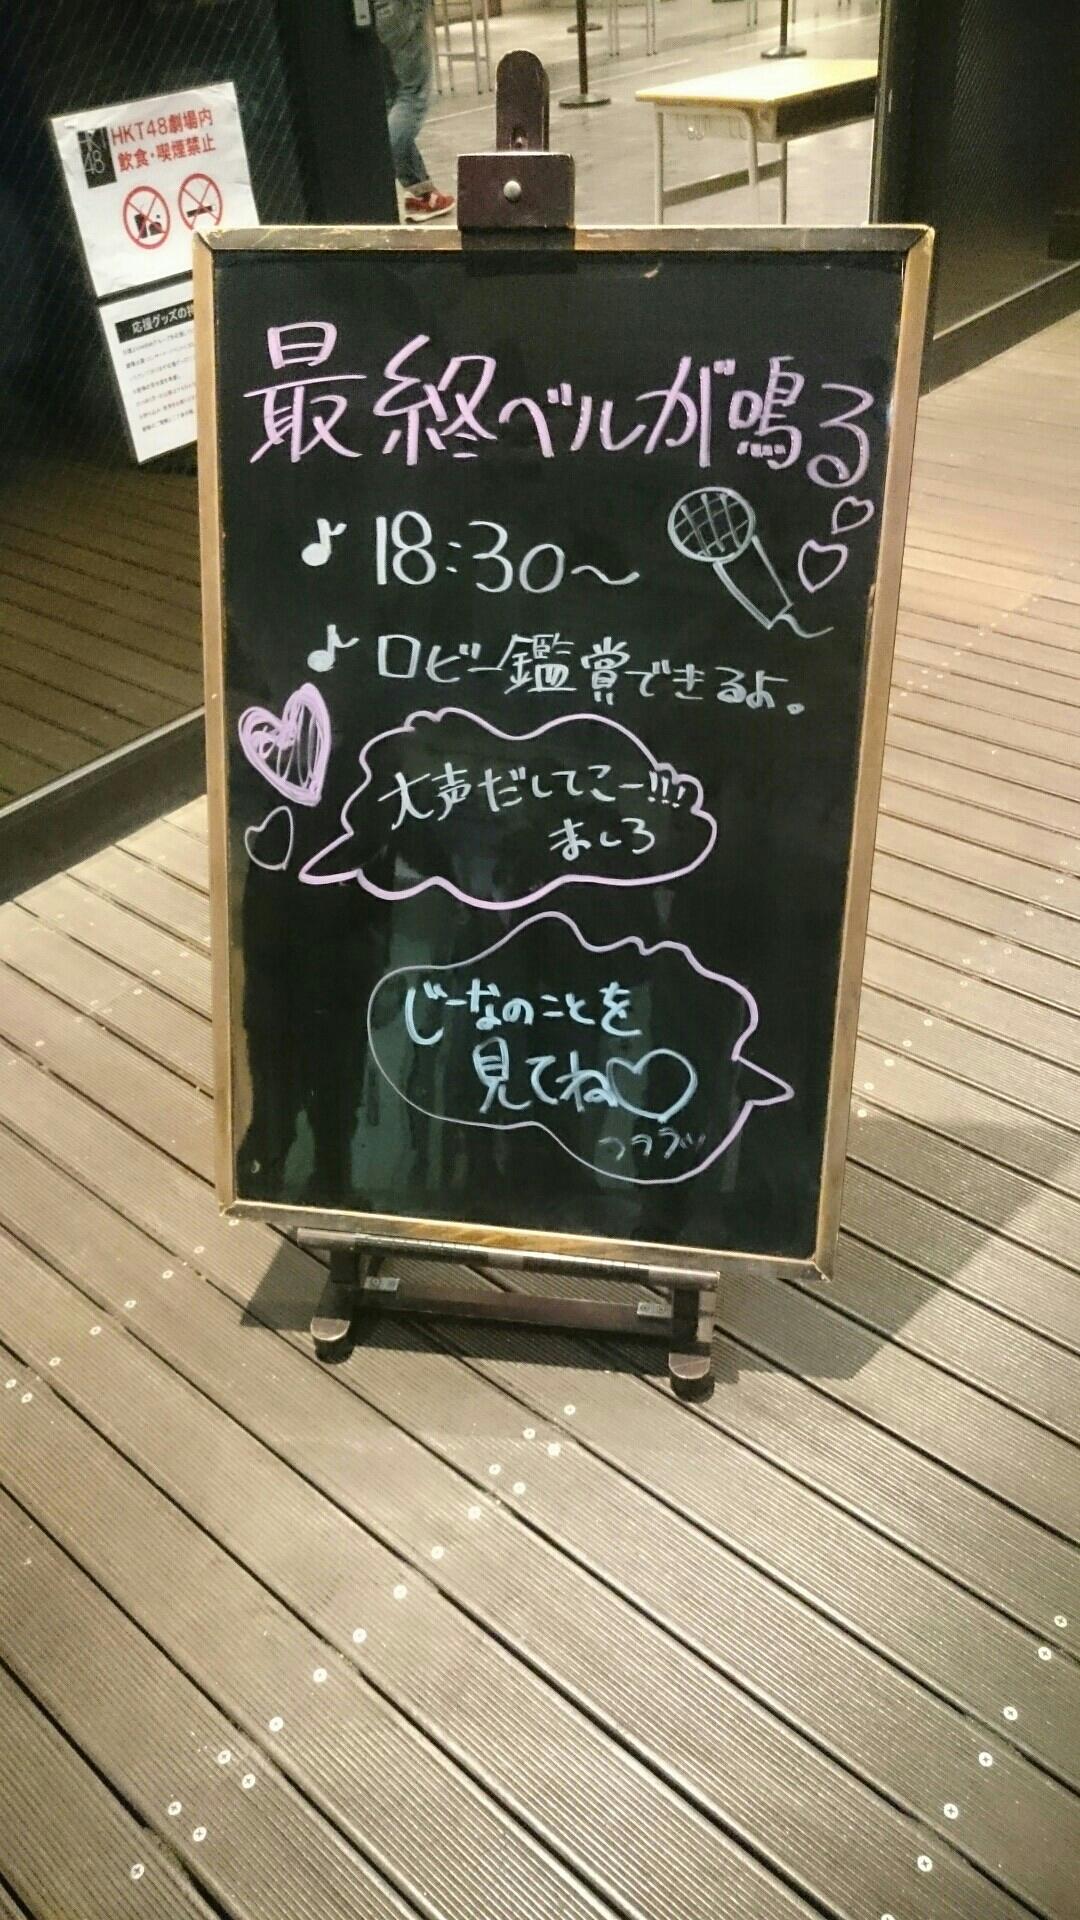 HKT48劇場内
飲食・喫煙禁止
HKT
48
応援グッズの
最終ベルが鳴る
♪ 18:30〜
♪ ロビー鑑賞できるよ。
大声だしてこー!!!
ましろ
じーなのことを
見てね♡